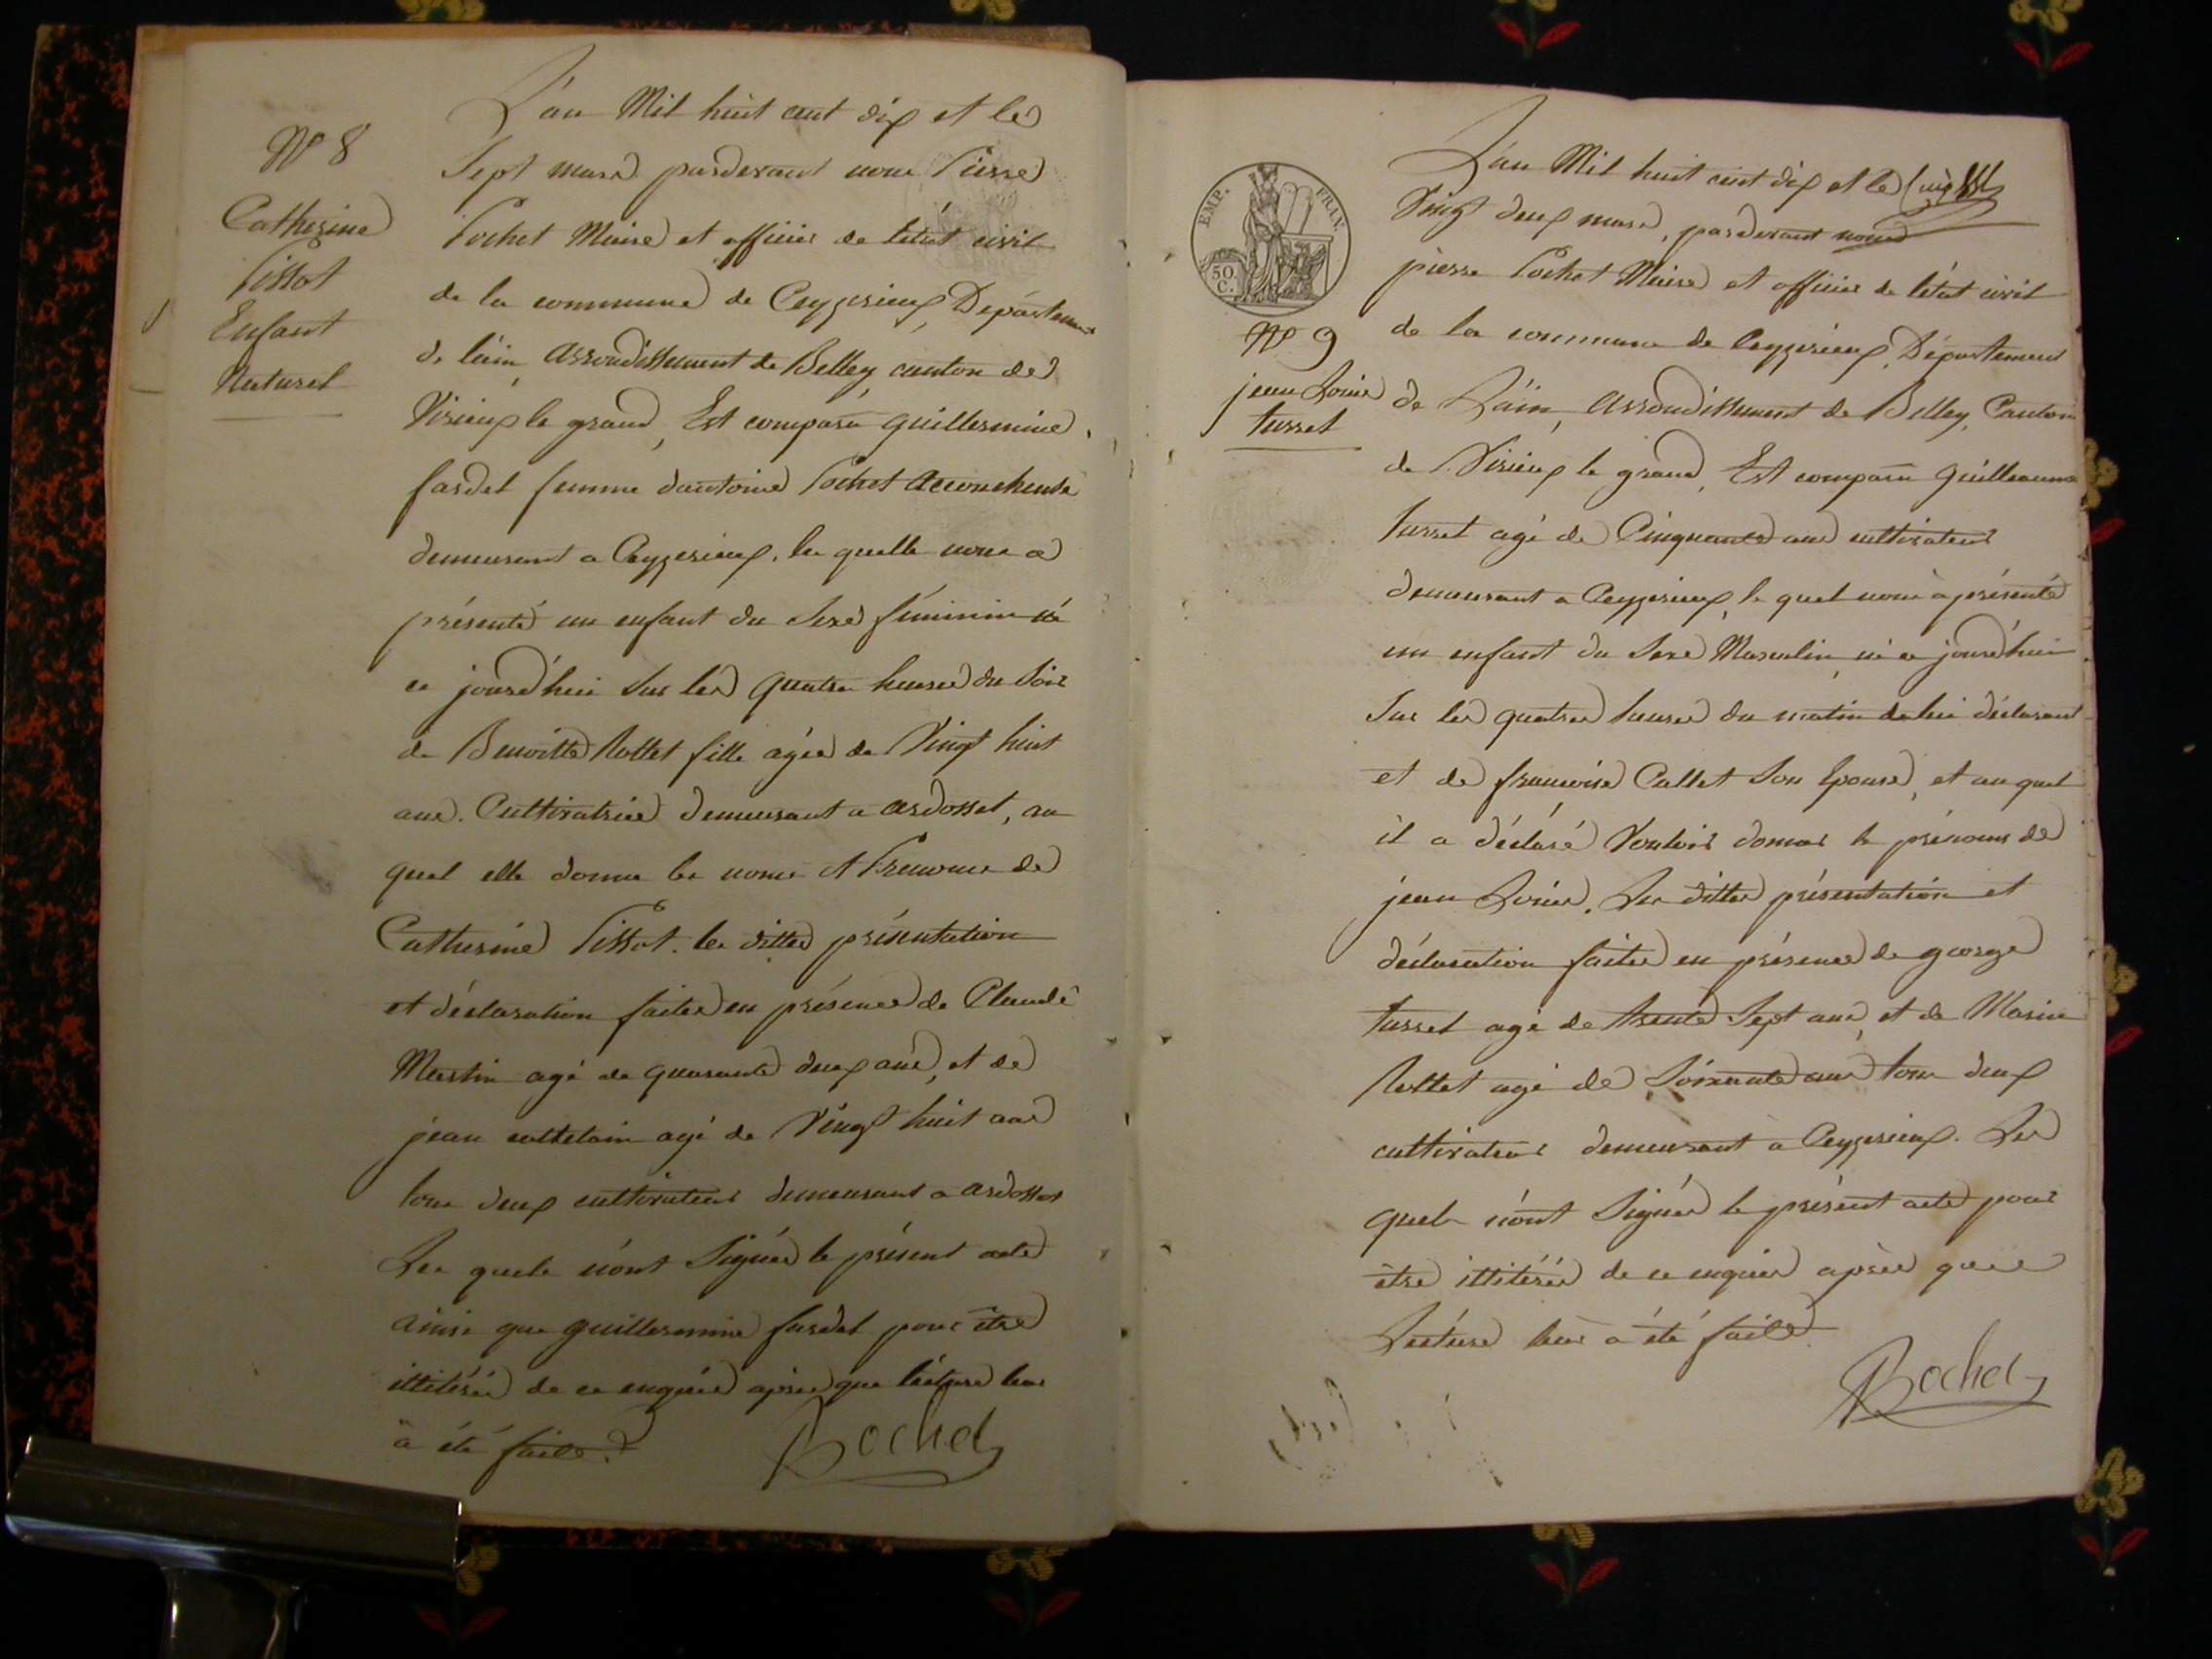 N° 8
Catherine
Pissot
Enfant
Naturel
L'an Mil huit cent dix et le
Sept mars pardevant nous Pierre
Pochet Maire et officier de l'état civil
de la commune de Ceyzerieux, Département
de l'ain, arrondissement de Belley, canton de
Virieux le grand, Est comparu guillermine
fardel femme d'antoine Pochet accoucheuse
demeurant a Ceyzerieux, la quelle nous a
présenté un enfant du Sexe féminin né
ce jourd'hui Sur les quatre heures du Soir
de Benoitte Rottet fille agée de Vingt huit
ans. Cultivatrice demeurant a ardosset, au
quel elle donne les noms et Prenoms de
Catherine Pissot. les dittes présentation
et déclaration faites en présence de Claude
Martin agé de quarante deux ans, et de
jean cattelain agé de Vingt huit ans
tous deux cultivateurs demeurant a ardosset
Les quels n'ont Signés le présent acte
ainsi que guillermine fardel pour être
illitérés de ce enquis après que lécture leur
a été faite.
Pochet
EMP. FRAN.
50
C.
N° 9
jean Louis
turrel
L'an Mil huit cent dix et le
Vingt deux mars, pardevant nous
pierre Pochet Maire et officier de l'état civil
de la commune de Ceyzerieux, Département
de L'ain, arrondissement de Belley, Canton
de Virieux le grand, Est comparu guilleaume
turrel agé de Cinquante ans cultivateur
demeurant a Ceyzerieux, le quel nous a présenté
un enfant du Sexe Masculin, né ce jourd'hui
Sur les quatres heures du matin de lui déclarant
et de francoise Callet Son Epouse, et au quel
il a déclaré Vouloir donner le prénoms de
jean Louis. Les dittes présentation et
déclaration faites en présence de george
turrel agé de trente Sept ans, et de Marin
Rottet agé de Soixante ans tous deux
cultivateurs demeurant a Ceyzerieux. Les
quels n'ont Signés le présent acte pour
être illitérés de ce enquis après que
Lecture leur a été faite
Pochet